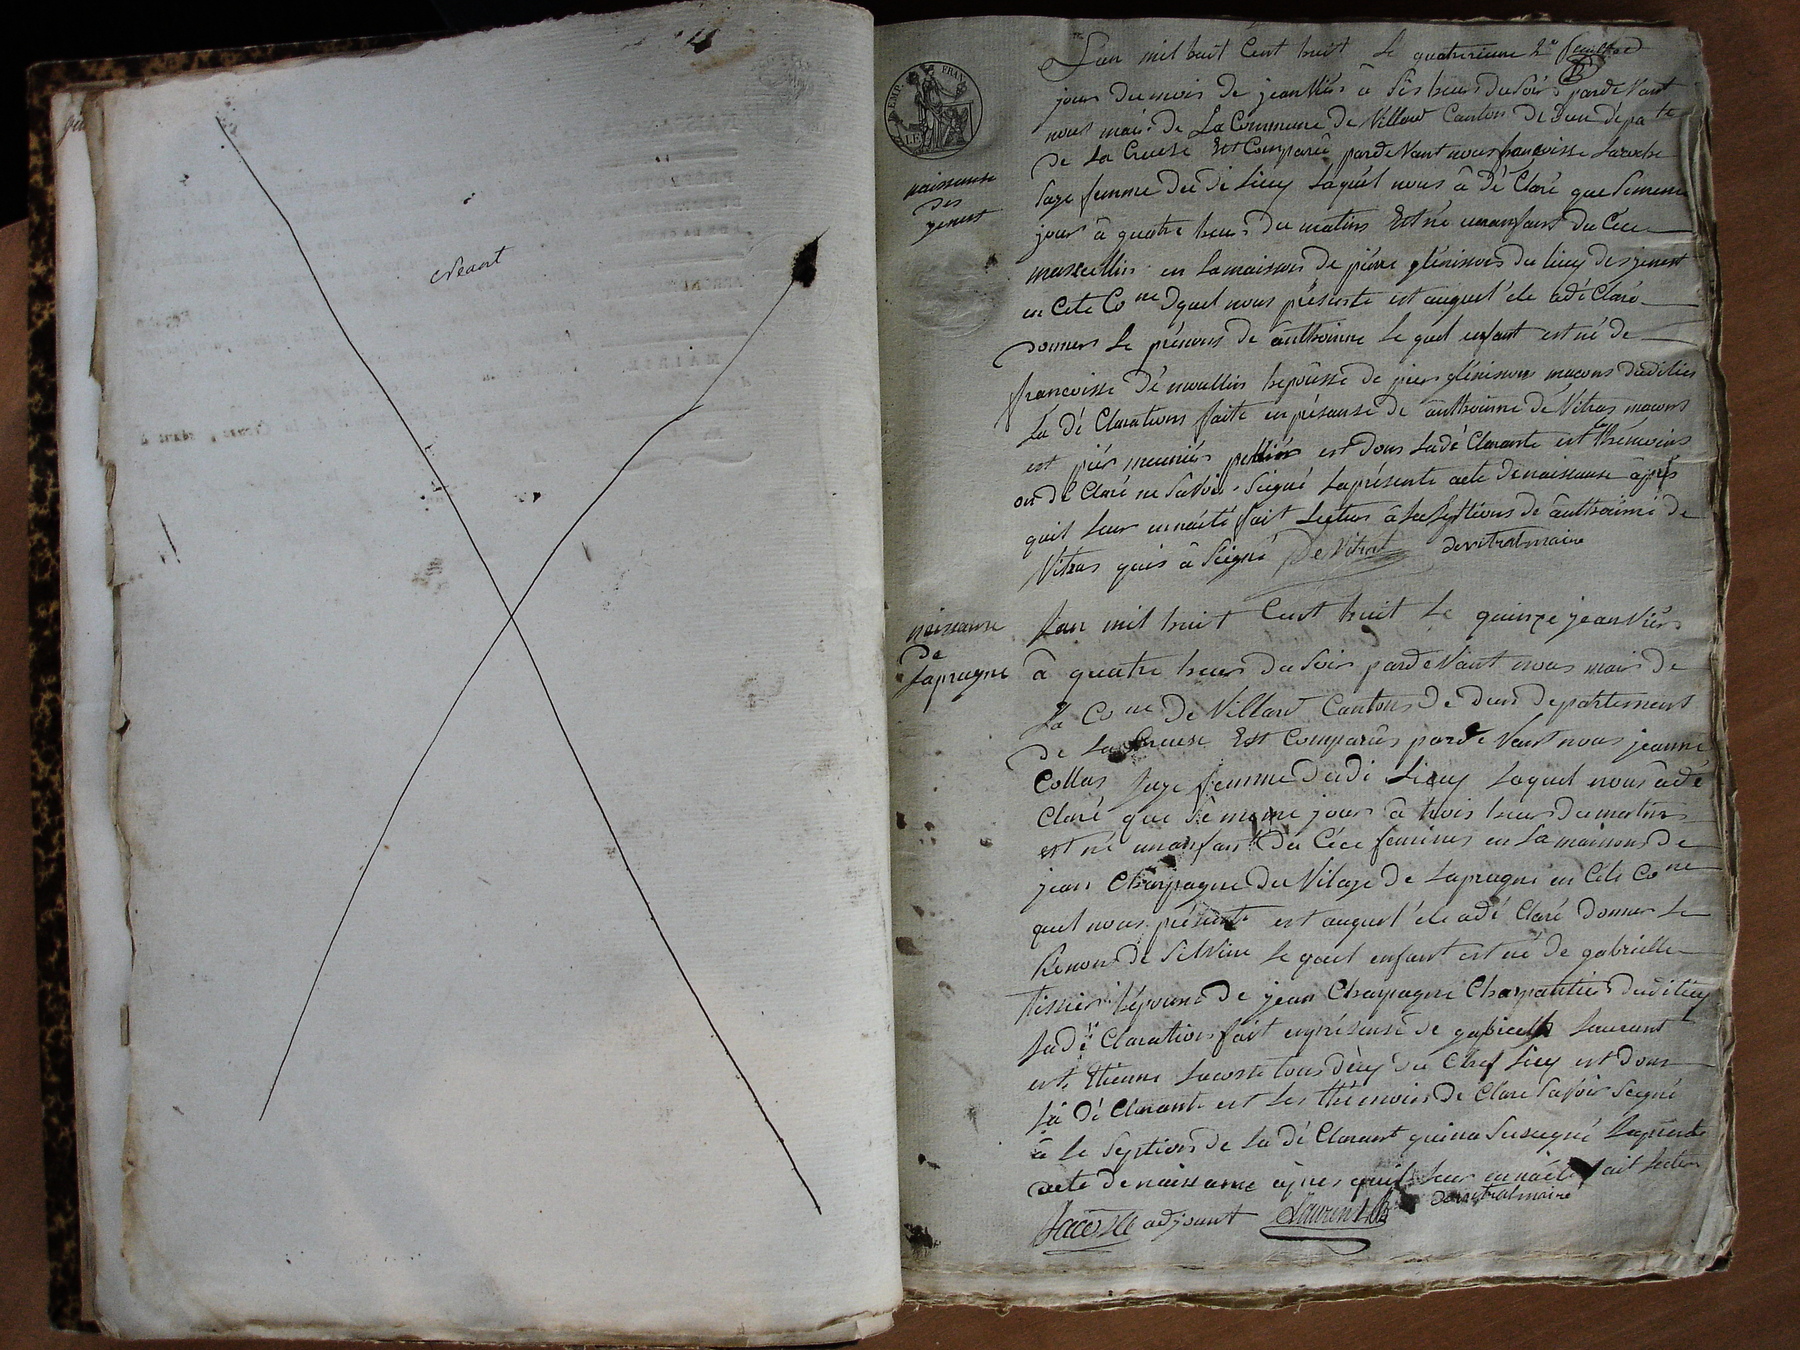 Néant
EMP. FRAN.
L'an mil huit Cent huit Le quatrieme 2e feuillet
jour du mois de jeanvier à Sis heur du Soir pardevant
nous mair de La Commune de Villard Canton de dun dépate
de La Creuse Est Comparû pardevant nous francoisse Laroche
naissanse
des
genest
Saje femme du di Lieu Laquel nous â dé Claré que Semême
jour â quatre heur du matin Est né un anfant du Cece
masculin en La maison de piere glénisson du lieu des genest
en Cete Cone quel nous présente est auquel'ele adé Claré
donner Le prénons de anthoinne Le quel enfant est né de
francoisse démoullin hepousse de pier glénisson macons dudilieu
La dé Claration faite en présanse de anthoinne dé Vitras macons
est pier meuniér est dons Ladé Clarante est Lesthémoins
on dé Claré ne Savoir Seigné Laprésente acte denaissanse âprés
quil Leur ennaété fait Lecture â Lecseption de anthoinne de
Vitras quis â Seigné De Vitrat devitrat maire
naissanse
de
Lapragne
Lan mil huit Cent huit Le quinze jeanvier
â quatre heur du Soir pardevant nous mair de
La Cone De Villard Canton de dun departement
de La Creuse Est Comparûs pardevant nous jeanne
Collas Saje femme dudi Lieu Laquel nous âdé
Claré que Sêmeme jour â trois heur du matin
est né un anfant du Céce feminin en La maison de
jean Charpagne du Vilage de Lapragne en Cete Cone
quel nous présente est auquel'ele adé Claré donner Le
Penon de Silvine Le quel enfant est né de gabrielle
tissier l'épouse de jean Charpagne Charpantier dudilieu
Ladé Claration fait enprésense de gabriell Laurant
est Etienne Lacoste tous deux du Chef Lieu est dons
La dé Clarante est Les thémoins dé Clare Savoir Seigné
â Le Septions de La dé Clarant quina Suseigné Laprésente
acte denaissanse âpres quil Leur ennaété fait Lecture
Lacoste adjoint Laurent devitrat maire